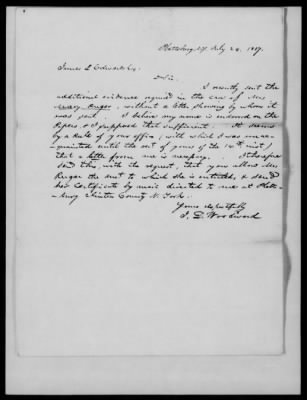 Plattsburgh, July 24, 1857.
James L Edwards Esq.
Sir.
I recently sent the
additional evidence required in the case of Mrs
Mary Ruger, without a letter showing by whom it
was sent. I believe my name is endorsed on the
Papers & I supposed that sufficient. It seems
by a rule of your office, (with which I was unac-
quainted until the rect of yours of the 14th inst)
that a letter from me is necessary. I therefore
send this, with the request, that you allow Mrs
Ruger the sum to which she is entitled, & send
her Certificate by mail directed to me at Platts-
burg Clinton County N. York.
Yours respectfully
J. D. Woodward